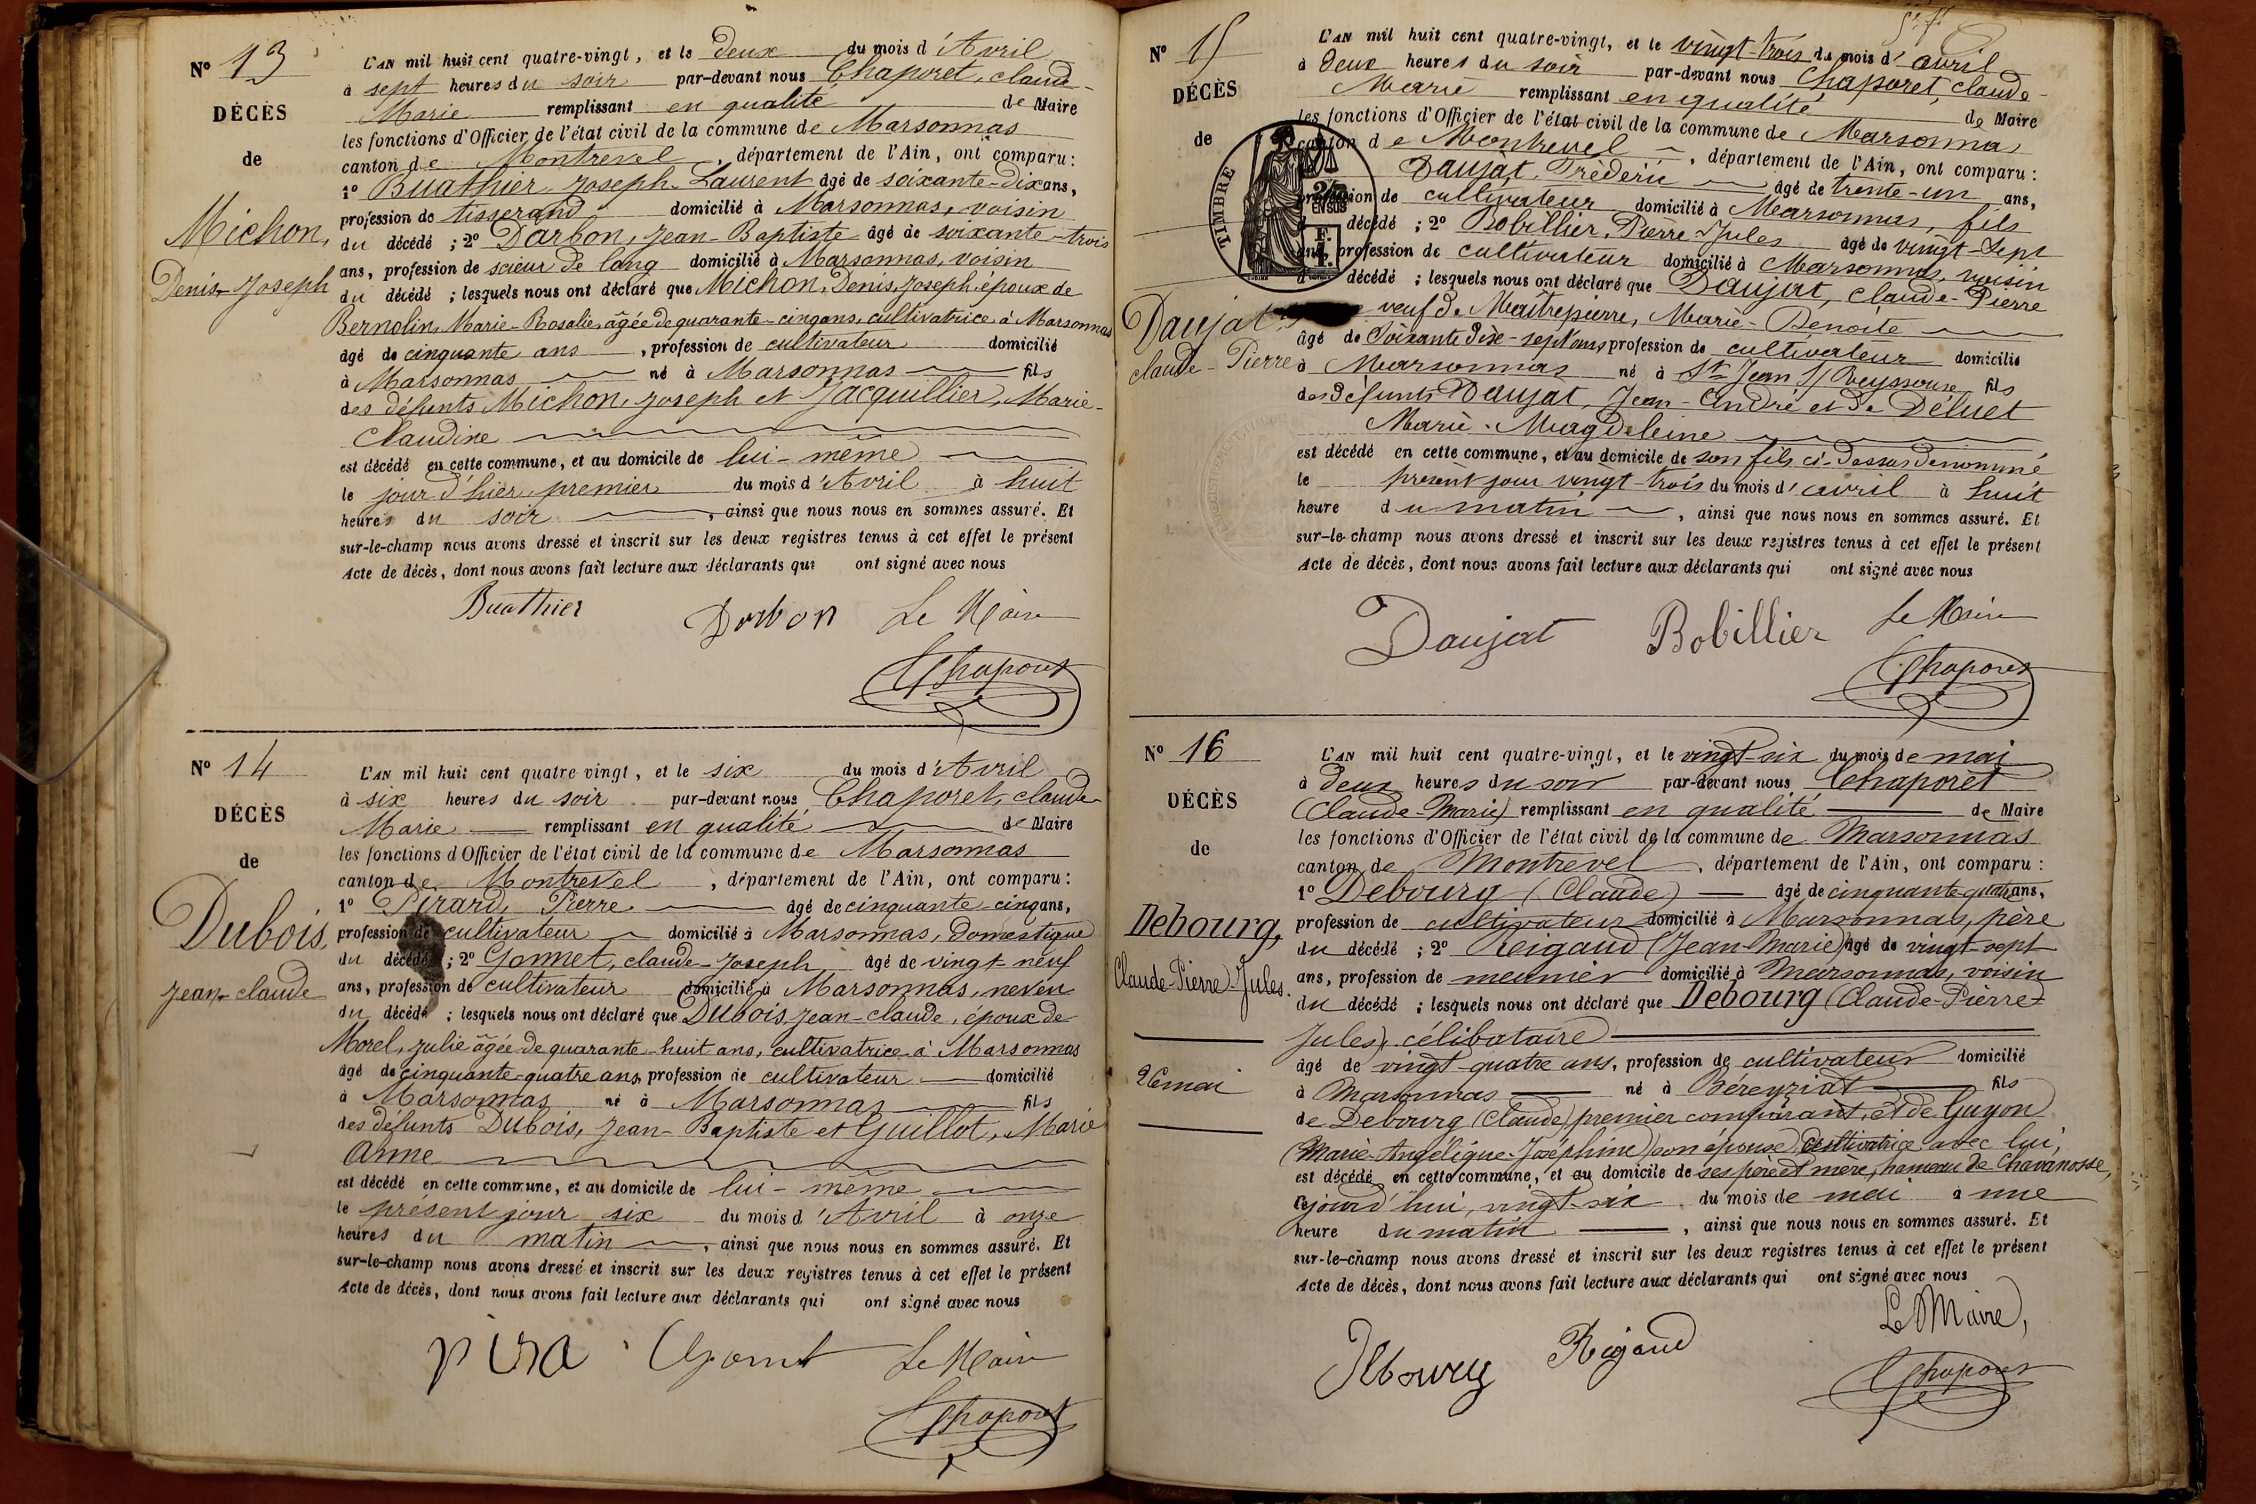 Nº 13
DÉCÈS
de
Michon,
Denis-Joseph
L'AN mil huit cent quatre-vingt, et le deux du mois d'Avril
à sept heures du soir par-devant nous Chaporet, claude-
Marie remplissant en qualité de Maire
les fonctions d'Officier de l'état civil de la commune de Marsonnas
canton de Montrevel, département de l'Ain, ont comparu:
1º Buathier Joseph-Laurent âgé de soixante-dix ans,
profession de tisserand domicilié à Marsonnas, voisin
du décédé ; 2º Darbon, Jean-Baptiste âgé de soixante-trois
ans, profession de scieur de long domicilié à Marsonnas, voisin
du décédé ; lesquels nous ont déclaré que Michon, Denis, Joseph époux de
Bernolin, Marie-Rosalie, âgée de quarante-cinq ans, cultivatrice à Marsonnas
âgé de cinquante ans, profession de cultivateur domicilié
à Marsonnas né à Marsonnas fils
des défunts Michon, Joseph et Jacquillier, Marie-
Claudine
est décédé en cette commune, et au domicile de lui-même
le jour d'hier premier du mois d'Avril à huit
heures du soir, ainsi que nous nous en sommes assuré. Et
sur-le-champ nous avons dressé et inscrit sur les deux registres tenus à cet effet le présent
Acte de décès, dont nous avons fait lecture aux déclarants qui ont signé avec nous
Buathier Darbon Le Maire
Chaporet
Nº 14
DÉCÈS
de
Dubois,
Jean-claude
L'AN mil huit cent quatre vingt, et le six du mois d'Avril
à six heures du soir par-devant nous Chaporet, claude
Marie remplissant en qualité de Maire
les fonctions d'Officier de l'état civil de la commune de Marsonnas
canton de Montrevel, département de l'Ain, ont comparu:
1º Pirard, Pierre âgé de cinquante-cinq ans,
profession de cultivateur domicilié à Marsonnas, domestique
du décédé ; 2º Gonnet, claude-Joseph âgé de vingt-neuf
ans, profession de cultivateur domicilié à Marsonnas, neveu
du décédé ; lesquels nous ont déclaré que Dubois, Jean-claude, époux de
Morel, Julie âgée de quarante-huit ans, cultivatrice à Marsonnas
âgé de cinquante-quatre ans, profession de cultivateur domicilié
à Marsonnas né à Marsonnas fils
des défunts Dubois, Jean-Baptiste et Guillot, Marie
Anne
est décédé en cette commune, et au domicile de lui-même
le présent jour six du mois d'Avril à onze
heures du matin, ainsi que nous nous en sommes assuré. Et
sur-le-champ nous avons dressé et inscrit sur les deux registres tenus à cet effet le présent
Acte de décès, dont nous avons fait lecture aux déclarants qui ont signé avec nous
Le Maire
Chaporet
Nº 15
DÉCÈS
de
TIMBRE
Daujat
claude-Pierre
L'AN mil huit cent quatre-vingt, et le vingt-trois du mois d'avril
à deux heures du soir par-devant nous Chaporet, Claude-
Marie remplissant en qualité de Maire
les fonctions d'Officier de l'état civil de la commune de Marsonnas
canton de Montrevel, département de l'Ain, ont comparu:
Daujat, Frédéric âgé de trente-un ans,
profession de cultivateur domicilié à Marsonnas, fils
décédé ; 2º Bobillier, Pierre-Jules âgé de vingt-sept
ans, profession de cultivateur domicilié à Marsonnas, voisin
décédé ; lesquels nous ont déclaré que Daujat, claude-Pierre
veuf de Maîtrepierre, Marie-Benoite
âgé de soixante dix-sept ans, profession de cultivateur domicilié
à Marsonnas né à St Jean S/ Reyssouze fils
des défunts Daujat, Jean-André et de Déluet
Marie-Magdeleine
est décédé en cette commune, et au domicile de son fils ci-dessus dénommé
le présent jour vingt-trois du mois d'avril à huit
heure du matin, ainsi que nous nous en sommes assuré. Et
sur-le-champ nous avons dressé et inscrit sur les deux registres tenus à cet effet le présent
Acte de décès, dont nous avons fait lecture aux déclarants qui ont signé avec nous
Daujat Bobillier Le Maire
Chaporet
Nº 16
DÉCÈS
de
Debourg,
Claude-Pierre-Jules.
26 mai
L'AN mil huit cent quatre-vingt, et le vingt-six du mois de mai
à deux heures du soir par-devant nous Chaporet
(Claude-Marie) remplissant en qualité de Maire
les fonctions d'Officier de l'état civil de la commune de Marsonnas
canton de Montrevel, département de l'Ain, ont comparu:
1º Debourg (Claude) âgé de cinquante-quatre ans,
profession de cultivateur domicilié à Marsonnas, père
du décédé ; 2º Reigaud (Jean-Marie) âgé de vingt-sept
ans, profession de meunier domicilié à Marsonnas, voisin
du décédé ; lesquels nous ont déclaré que Debourg (Claude-Pierre-
Jules), célibataire
âgé de vingt-quatre ans, profession de cultivateur domicilié
à Marsonnas né à Béreyziat fils
de Debourg (Claude) premier comparant, et de Guyon
(Marie-Angélique-Joséphine) son épouse, cultivatrice avec lui,
est décédé en cette commune, et au domicile de ses père et mère, hameau de Chavanosse,
aujourd'hui, vingt-six du mois de mai à une
heure du matin, ainsi que nous nous en sommes assuré. Et
sur-le-champ nous avons dressé et inscrit sur les deux registres tenus à cet effet le présent
Acte de décès, dont nous avons fait lecture aux déclarants qui ont signé avec nous
Le Maire,
Rigaud
Chaporet